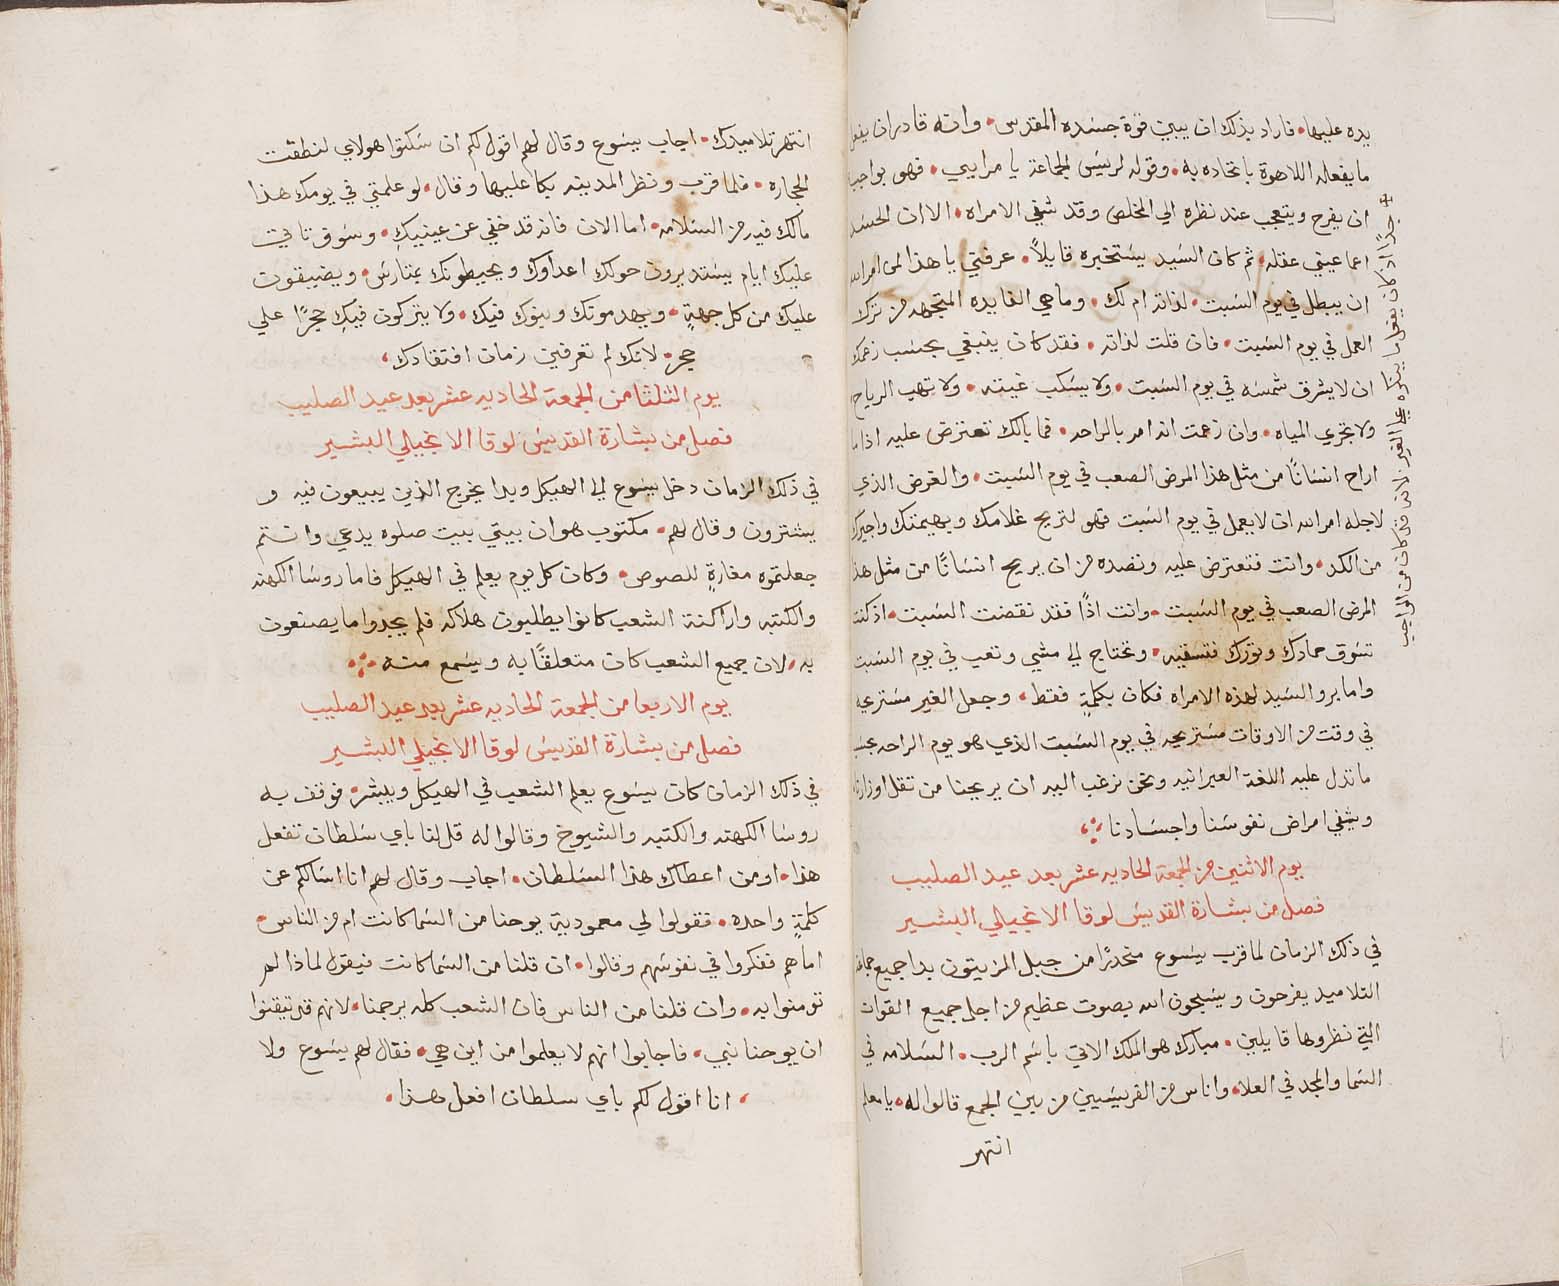 يده عليها٠ فاراد بذلك ان يبين قوة جسده المقدس٠ وانه قادر ان يفعل
ما يفعله اللاهوة باتحاده به٠ وقوله لريس الجماعة يا مرايي٠ فهو بواجب
ان يفرح ويتعجب عند نظره الي المخلص وقد شفي الامراه٠ الا ان الحسد
اعما عيني عقله٠ ثم كان السيد يستخبره قايلاً٠ عرفني يا هذا لمن امر الله
ان يبطل في يوم السبت٠ لذاته ام لك٠ وما هي الفايده المتجهه من ترك
العمل في يوم السبت٠ فان قلت لذاته٠ فقد كان ينبغي بحسب زعمك
ان لا يشرق شمسه في يوم السبت٠ ولا يسكب غيثه٠ ولا تهب الرياح
ولا تجري المياه٠ وان زعمت انه امر بالراحه٠ فما بالك تعترض عليه اذا ما
اراح انسانًا من مثل هذا المرض الصعب في يوم السبت٠ والغرض الذي
لاجله امر الله ان لا يعمل في يوم السبت فهو لتريح غلامك وبهيمتك واجيرك
من الكد٠ وانت فتعترض عليه وتضده من ان يريح انسانًا من مثل هذا
المرض الصعب في يوم السبت٠ وانت اذًا فقد نقضت السبت٠ اذ كنت
تسوق حمارك وثورك فتسقيه٠ وتحتاج الي مشي وتعب في يوم السبت
واما برو السيد لهذه الامراه فكان بكلمةٍ فقط٠ وجعل الغير مستريحه
في وقت من الاوقات مستريحه في يوم السبت الذي هو يوم الراحه بحسب
ما تدل عليه اللغة العبرانيه ونحن نرغب اليه ان يريحنا من ثقل اوزارنا
ويشفي امراض نفوسنا واجسادنا
يوم الاثنين من الجمعة الحاديه عشر بعد عيد الصليب
فصل من بشارة القديس لوقا الانجيلي البشير
في ذلك الزمان لما قرب يسوع منحدرًا من جبل الزيتون بدا جميع جماعة
التلاميد يفرحون ويسبحون الله بصوت عظيم من اجل جميع القوات
التي نظروها قايلين٠ مبارك هو الملك الاتي باسم الرب٠ السلامه في
السما والمجد في العلا٠ واناس من الفريسيين من بين الجمع قالوا له٠ يا معلم
انتهر
جدًا اذ كان يفعل ما ينكره علي الغير لانه قد كان من الواجب
انتهر تلاميدك٠ اجاب يسوع وقال لهم اقول لكم ان سكتوا هولاي لنطقت
الحجاره٠ فلما قرب ونظر المدينه بكا عليها وقال٠ لو علمتي في يومك هذا
مالك فيه من السلامه٠ اما الان فانه قد خفي عن عينيكِ٠ وسوف تاتي
عليك ايام يستديرون حولك اعداوك ويحيطونك بمتارس٠ ويضيقون
عليك من كل جهةٍ٠ ويهدمونك وبنوك فيك٠ ولا يتركون فيكِ حجرًا علي
حجر٠ لانك لم تعرفين زمان افتقادك،
يوم الثلثا من الجمعة الحاديه عشر بعد عيد الصليب
فصل من بشارة القديس لوقا الانجيلي البشير
في ذلك الزمان دخل يسوع الي الهيكل وبدا يخرج الذين يبيعون فيه و
يشترون وقال لهم٠ مكتوب هو ان بيتي بيت صلوه يدعي وانتم
جعلتموه مغارةٍ للصوص٠ وكان كل يوم يعلم في الهيكل فاما روسا الكهنه
والكتبه واراكنة الشعب كانوا يطلبون هلاكه فلم يجدوا ما يصنعون
به٠ لان جميع الشعب كان متعلقًا به ويسمع منه
يوم الاربعا من الجمعة الحاديه عشر بعد عيد الصليب
فصل من بشارة القديس لوقا الانجيلي البشير
في ذلك الزمان كان يسوع يعلم الشعب في الهيكل ويبشر٠ فوقف به
روسا الكهنه والكتبه والشيوخ وقالوا له قل لنا باي سلطان تفعل
هذا٠ او من اعطاك هذا السلطان٠ اجاب وقال لهم انا اسالكم عن
كلمةٍ واحده٠ فقولوا لي معمودية يوحنا من السما كانت ام من الناس٠
اما هم ففكروا في نفوسهم وقالوا٠ ان قلنا من السما كانت فيقول لماذا لم
تومنوا به٠ وان قلنا من الناس فان الشعب كله يرجمنا٠ لانهم قد تيقنوا
ان يوحنا نبي٠ فاجابوا انهم لا يعلموا من اين هي٠ فقال لهم يسوع ولا
انا اقول لكم باي سلطان افعل هذا٠